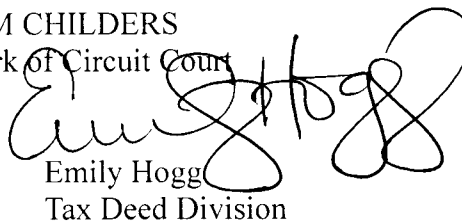 M CHILDERS
rk of Circuit Court
Emily Hogg
Emily Hogg
Tax Deed Division